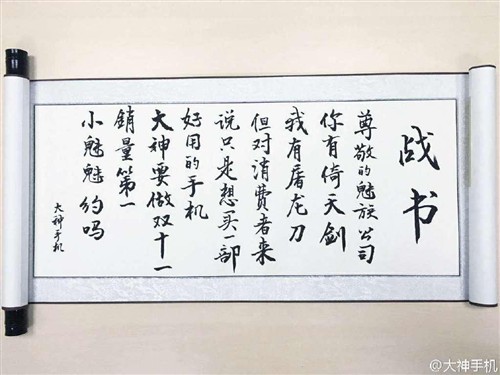 战书
尊敬的魅族公司
你有倚天剑
我有屠龙刀
但对消费者来
说只是想买一部
好用的手机
大神要做双十一
銷量第一
小魅魅约吗
大神手机
@大神手机